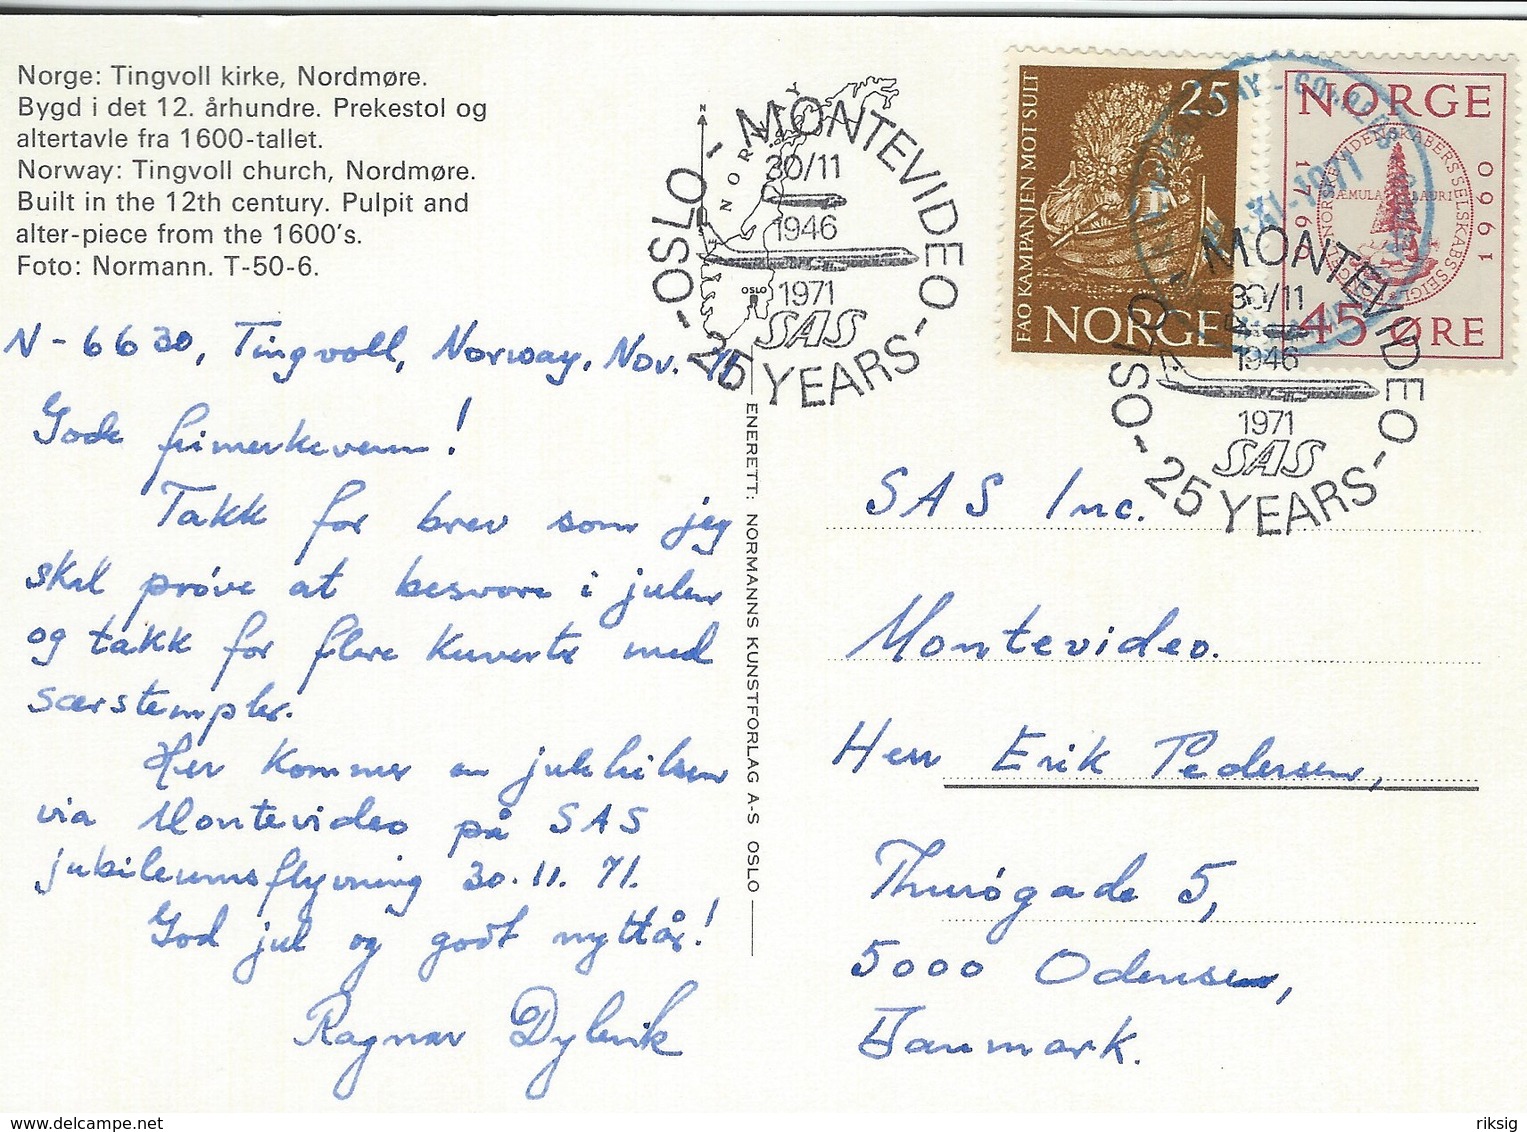 Norge: Tingvoll kirke, Nordmøre.
Bygd i det 12. århundre. Prekestol og
altertavle fra 1600-tallet.
Norway: Tingvoll church, Nordmøre.
Built in the 12th century. Pulpit and
alter-piece from the 1600's.
Foto: Normann. T-50-6.
N-6630, Tingvoll, Norway, Nov. 71
Gode frimerkevenn!
Takk for brev som jeg
skal prøve at besvare i julen
og takk for flere kuverter med
særstempler.
Her kommer en julehilsen
via Montevideo på SAS
jubileumsflyvning 30.11.71.
God jul og godt nyttår!
Ragnar
ENERETT: NORMANNS KUNSTFORLAG A-S OSLO
OSLO - MONTEVIDEO - 25 YEARS -
NORWAY
N
30/11
1946
OSLO
1971
SAS
FAO KAMPANJEN MOT SULT
25
NORGE
NORGE
1760
1960
45 ØRE
OSLO - MONTEVIDEO - 25 YEARS -
30/11
1946
1971
SAS
SAS Inc.
Montevideo.
Herr Erik Pedersen,
Thurøgade 5,
5000 Odense,
Danmark.
riksig